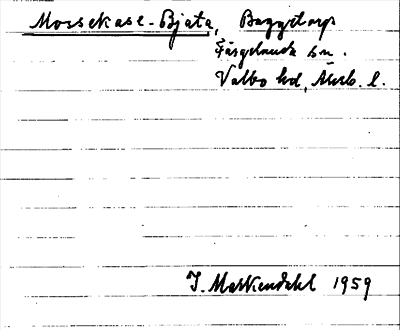 Mossekase-Bjata, Baggetorp
Färgelanda sn.
Valbo hd, Älvsb. l.
I. Mattiendahl 1959